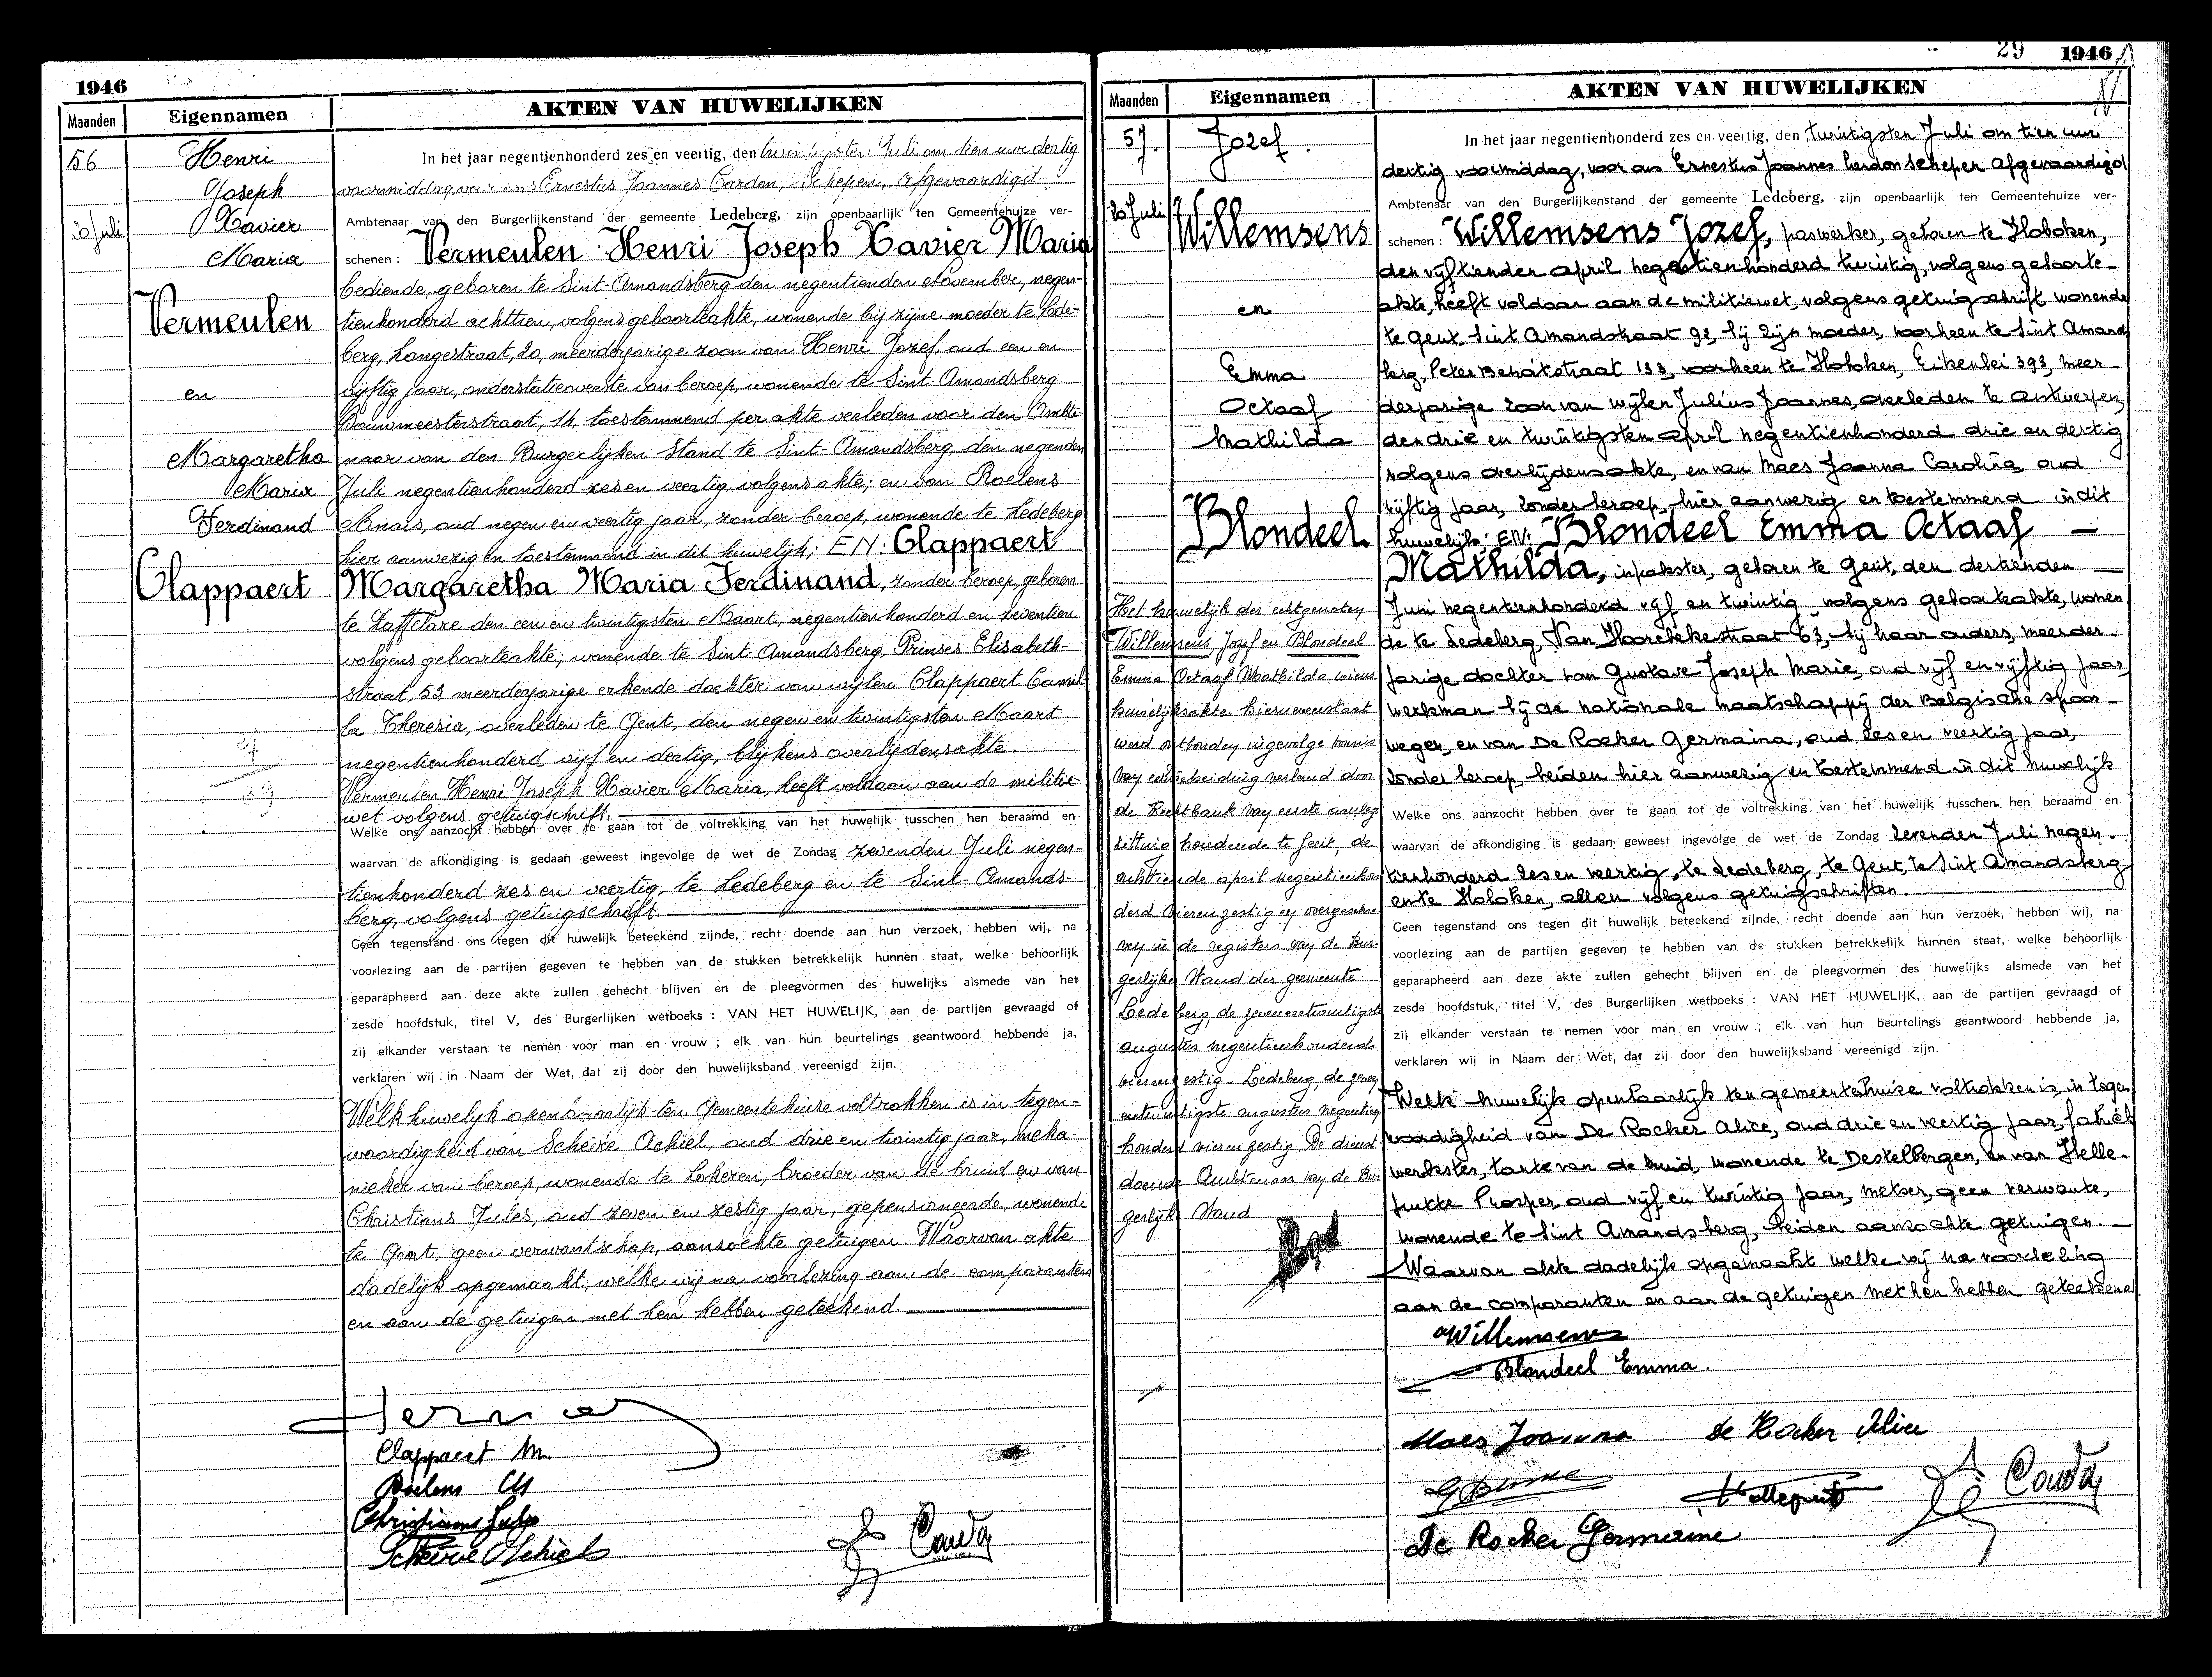 1946
Maanden
Eigennamen
AKTEN VAN HUWELIJKEN
56
Henri
Joseph
20 Juli
Xavier
Maria
Vermeulen
en
Margaretha
Maria
Ferdinand
Clappaert
In het jaar negentienhonderd zes en veertig, den twintigsten Juli om tien ure dertig
voormiddag voor ons Ernestus Joannes Cardon, Schepen, Afgevaardigd
Ambtenaar van den Burgerlijkenstand der gemeente Ledeberg, zijn openbaarlijk ten Gemeentehuize ver-
schenen : Vermeulen Henri Joseph Xavier Maria
bediende, geboren te Sint-Amandsberg den negentienden November, negen-
tienhonderd achttien, volgens geboorteakte, wonende bij zijne moeder te Lede-
berg, Langestraat, 20, meerderjarige zoon van Henri Jozef, oud een en
vijftig jaar, onderstatieoverste van beroep, wonende te Sint-Amandsberg
Bouwmeesterstraat, 14, toestemmend per akte verleden voor den Ambte-
naar van den Burgerlijken Stand te Sint-Amandsberg den negenden
Juli negentienhonderd zes en veertig, volgens akte; en van Roelens
Anaïs, oud negen en veertig jaar, zonder beroep, wonende te Ledeberg
hier aanwezig en toestemmend in dit huwelijk; EN: Clappaert
Margaretha Maria Ferdinand, zonder beroep, geboren
te Zaffelare den een en twintigsten Maart, negentienhonderd en zeventien
volgens geboorteakte; wonende te Sint-Amandsberg, Prinses Elisabeth-
straat, 53 meerderjarige erkende dochter van wijlen Clappaert Camil
la Theresia, overleden te Gent, den negen en twintigsten Maart
negentienhonderd vijf en dertig, blijkens overlijdensakte.
Vermeulen Henri Joseph Xavier Maria, heeft voldaan aan de militie-
wet volgens getuigschrift.
Welke ons aanzocht hebben over te gaan tot de voltrekking van het huwelijk tusschen hen beraamd en
waarvan de afkondiging is gedaan geweest ingevolge de wet de Zondag zevenden Juli negen-
tienhonderd zes en veertig, te Ledeberg en te Sint-Amands-
berg, volgens getuigschrift.
Geen tegenstand ons tegen dit huwelijk beteekend zijnde, recht doende aan hun verzoek, hebben wij, na
voorlezing aan de partijen gegeven te hebben van de stukken betrekkelijk hunnen staat, welke behoorlijk
geparapheerd aan deze akte zullen gehecht blijven en de pleegvormen des huwelijks alsmede van het
zesde hoofdstuk, titel V, des Burgerlijken wetboeks : VAN HET HUWELIJK, aan de partijen gevraagd of
zij elkander verstaan te nemen voor man en vrouw ; elk van hun beurtelings geantwoord hebbende ja,
verklaren wij in Naam der Wet, dat zij door den huwelijksband vereenigd zijn.
Welk huwelijk openbaarlijk ten Gemeentehuize voltrokken is in tegen-
woordigheid van Scheire Achiel, oud drie en twintig jaar, meka-
nieker van beroep, wonende te Lokeren, broeder van de bruid en van
Christians Jules, oud zeven en zestig jaar, gepensioneerde, wonende
te Gent, geen verwantschap, aanzochte getuigen. Waarvan akte
dadelijk opgemaakt, welke wij na voorlezing aan de comparanten
en aan de getuigen met hen hebben geteekend.
Clappaert M.
Roelens
Christians Jules
Scheire Achiel
29 1946
Maanden
Eigennamen
AKTEN VAN HUWELIJKEN
57.
Jozef.
20 Juli
Willemsens
en
Emma
Octaaf
Mathilda
Blondeel
Het huwelijk der echtgenoten
Willemsens, Jozef en Blondeel
Emma Octaaf Mathilda wiens
huwelijksakte hiernevenstaat
werd ontbonden ingevolge vonnis
van echtscheiding verleend door
de Rechtbank van eerste aanleg
zitting houdende te Gent, de
achttiende april negentienhon
derd vierenzestig en overgeschre
ven in de registers van de Bur-
gerlijke Stand der gemeente
Ledeberg, de zevenentwintigste
augustus negentienhonderd
vierenzestig. Ledeberg, de zeven
entwintigste augustus negentien
honderd vierenzestig. De dienst-
doende Ambtenaar van de Bur
gerlijk Stand
In het jaar negentienhonderd zes en veertig, den twintigsten Juli om tien uur
dertig voormiddag, voor ons Ernestus Joannes Cardon schepen afgevaardigd
Ambtenaar van den Burgerlijkenstand der gemeente Ledeberg, zijn openbaarlijk ten Gemeentehuize ver-
schenen : Willemsens Jozef, paswerker, geboren te Hoboken,
den vijftienden april negentienhonderd twintig, volgens geboorte-
akte, heeft voldaan aan de militiewet, volgens getuigschrift wonende
te Gent, Sint Amandstraat 92, bij zijn moeder, voorheen te Sint Amands
berg, Peter Benoitstraat 133, voorheen te Hoboken, Eikenlei 393, meer-
derjarige zoon van wijlen Julius Joannes, overleden te Antwerpen,
den drie en twintigsten april negentienhonderd drie en dertig
volgens overlijdensakte, en van Maes Joanna Carolina, oud
vijftig jaar, zonder beroep, hier aanwezig en toestemmend in dit
huwelijk: EN: Blondeel Emma Octaaf
Mathilda, inpakster, geboren te Gent, den dertienden
Juni negentienhonderd vijf en twintig, volgens geboorteakte, wonen
de te Ledeberg, Van Hoorebekestraat 63, bij haar ouders, meerder-
jarige dochter van Gustave Joseph Marie, oud vijf en vijftig jaar,
werkman bij de nationale maatschappij der Belgische spoor-
wegen, en van De Rocker Germaina, oud zes en veertig jaar,
zonder beroep, beiden hier aanwezig en toestemmend in dit huwelijk
Welke ons aanzocht hebben over te gaan tot de voltrekking van het huwelijk tusschen hen beraamd en
waarvan de afkondiging is gedaan geweest ingevolge de wet de Zondag zevenden Juli negen-
tienhonderd zes en veertig, te Ledeberg, te Gent, te Sint Amandsberg
en te Hoboken, allen volgens getuigschriften.
Geen tegenstand ons tegen dit huwelijk beteekend zijnde, recht doende aan hun verzoek, hebben wij, na
voorlezing aan de partijen gegeven te hebben van de stukken betrekkelijk hunnen staat, welke behoorlijk
geparapheerd aan deze akte zullen gehecht blijven en de pleegvormen des huwelijks alsmede van het
zesde hoofdstuk, titel V, des Burgerlijken wetboeks : VAN HET HUWELIJK, aan de partijen gevraagd of
zij elkander verstaan te nemen voor man en vrouw ; elk van hun beurtelings geantwoord hebbende ja,
verklaren wij in Naam der Wet, dat zij door den huwelijksband vereenigd zijn.
Welk huwelijk openbaarlijk ten gemeentehuize voltrokken is, in tegen
woordigheid van De Rocker Alice, oud drie en veertig jaar, fabriek
werkster, tante van de bruid, wonende te Destelbergen, en van Helle-
putte Prosper, oud vijf en twintig jaar, metser, geen verwante,
wonende te Sint Amandsberg, beiden aanzochte getuigen.
Waarvan akte dadelijk opgemaakt welke wij na voorlezing
aan de comparanten en aan de getuigen met hen hebben geteekend.
Willemsens
Blondeel Emma.
Maes Joanna de Rocker Alice
De Rocker Germaine